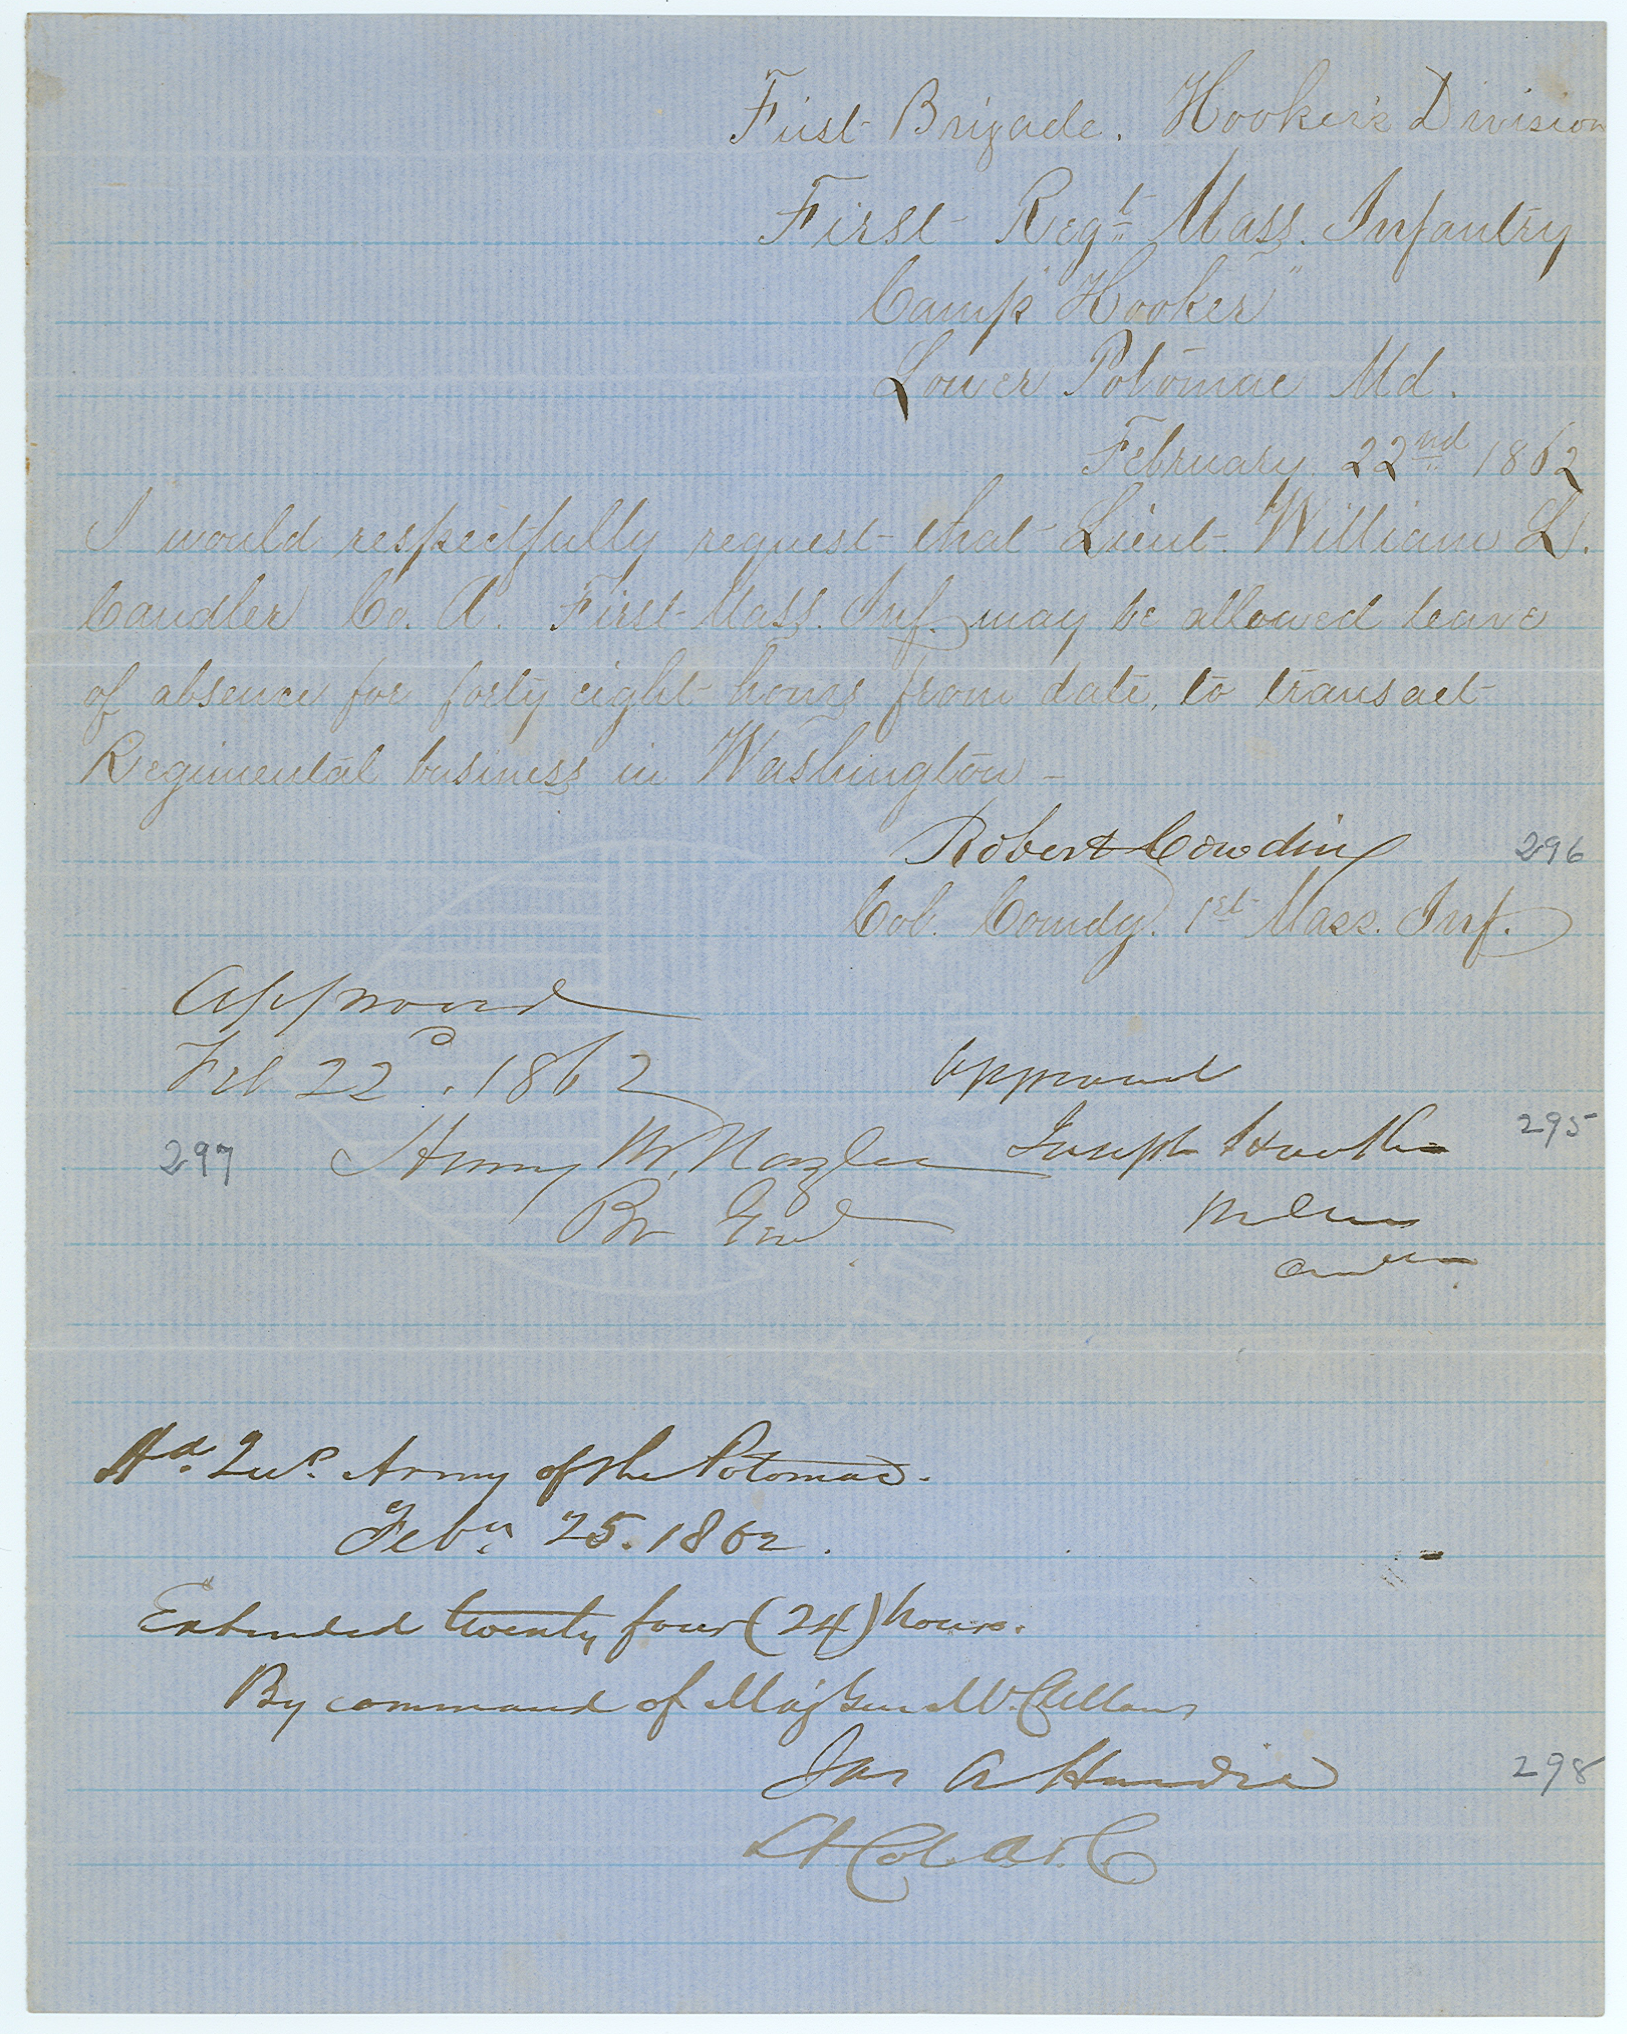 First Brigade. Hooker's Division
First Regt. Mass. Infantry
Camp "Hooker"
Lower Potomac Md.
February 22nd 1862
I would respectfully request that Lieut. William L.
Candler Co. A. First Mass. Inf. may be allowed leave
of absence for forty eight hours from date, to transact
Regimental business in Washington -
Robert Cowdin
296
Col. Comdg. 1st Mass. Inf.
Approved
Feb 22d. 1862
Approved
297
Henry M. Naglee
Joseph Hooker
295
Br Genl.
Hd. Qus. Army of the Potomac.
Feby. 25. 1862.
Extended twenty four (24) hours.
By command of Maj Gen McClellan
Jas A Hardie
298
Lt Col. A.D.C